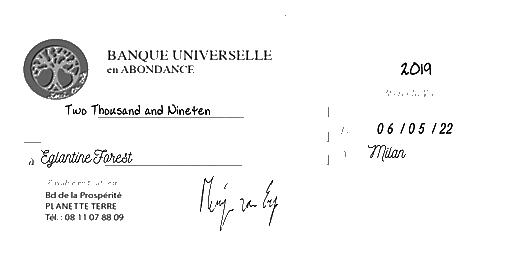 BANQUE UNIVERSELLE
en ABONDANCE
2019
Two Thousand and Nineten
06/05/22
à Eglantine Forest
Milan
Bd de la Prospérité
PLANETTE TERRE
Tél. : 08 11 07 88 09